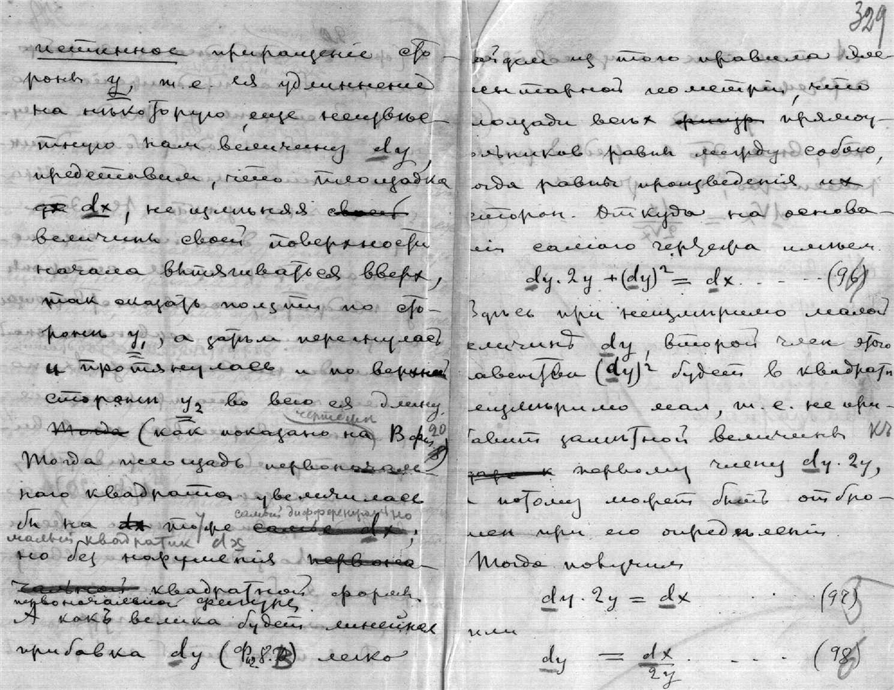 329
истинное приращеніе сто-
роны y, т. е. ея удлинненіе
на нѣкоторую, еще неизвѣс-
тную нам величину dy,
представим, что площадка
dx, не измѣняя своей
величины своей поверхности
начала вытягиваться вверх,
так сказать ползти по сто-
роны y₁, а затѣм перегнулась
и протянулась и по верхней
стороны y₂ во всю ея длину.
чертежи
Тогда (как показано на В фиг. 20)
Тогда площадь первоначаль-
наго квадрата увеличилась
самый дифференціально
бы на dx тоже самое dx,
малый квадратик dx
но без нарушенія первона-
чальной квадратной формы.
первоначальной фигуры.
А какъ велика будет линейная
прибавка dy (Фиг. 8. В) легко
найдем из того правила Эле-
ментарной геометріи, что
площади всѣх фигур прямоу-
гольников равны между собою,
когда равны произведенія их
сторон. Откуда на основа-
ніи самаго чертежа имѣем
dy. 2y + (dy)² = dx . . . . . (96)
Здѣсь при неизмѣримо малой
величинѣ dy, второй член этого
равенства (dy)² будет в квадратѣ
неизмѣримо мал, т. е. не при-
бавит замѣтной величины къ
первому члену dy. 2y,
и потому может быть отбро-
шен при его опредѣленіи.
Тогда получим
dy. 2y = dx . . . . . (97)
или
dy = dx/2y . . . . . (98)